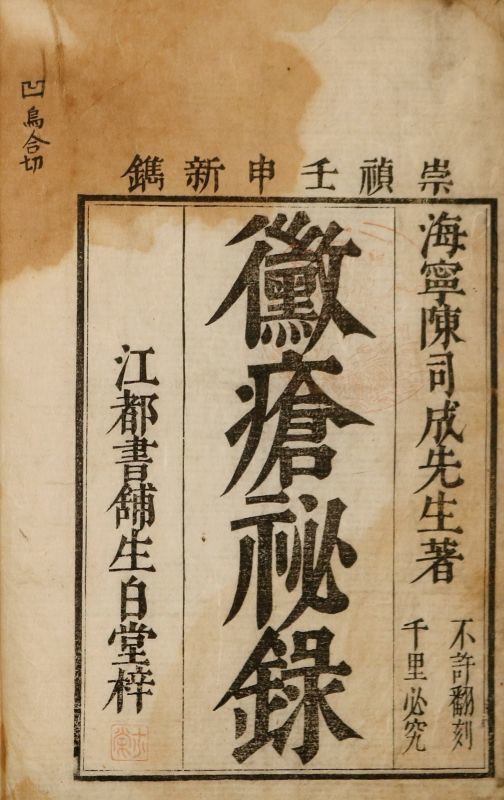 崇禎壬申新鐫
海寧陳司成先生著
不許翻刻
千里必究
黴瘡祕錄
江都書舖生白堂梓
凹烏合切